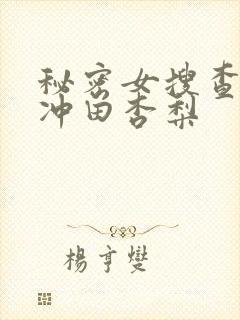 秘密女搜查
冲田杏梨
楊亨燮